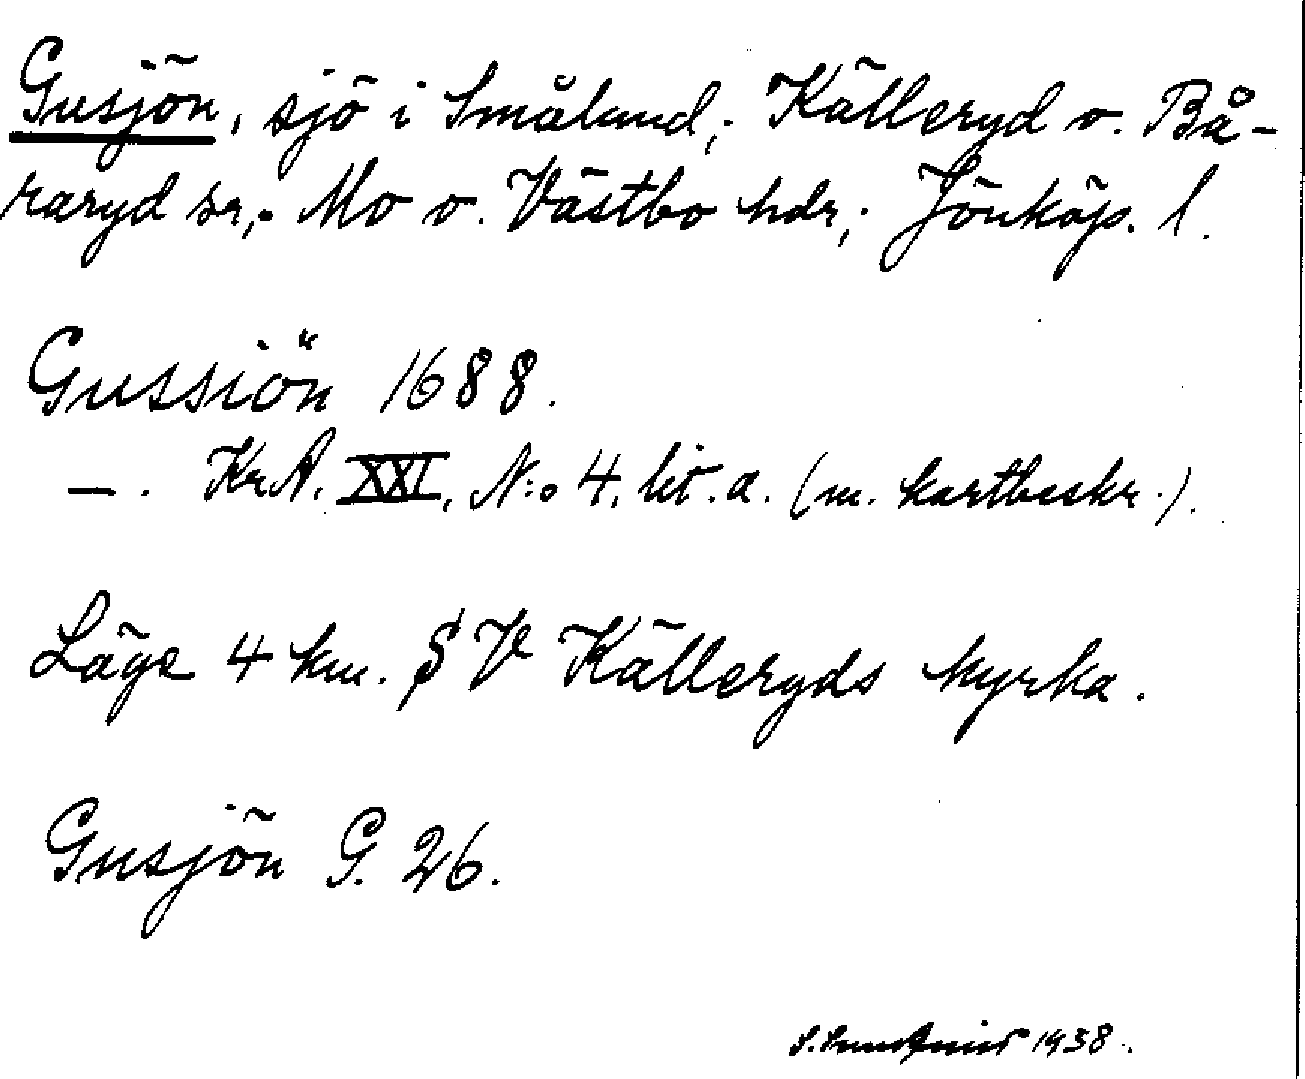 Gusjön, sjö i Småland; Källeryd o. Bå-
raryd snr; Mo o. Västbo hdr; Jönköp. l.
Gussiön 1688.
—. KrA. XXI, N:o 4, lit. a. (m. kartbeskr.).
Läge 4 km. S V Källeryds kyrka.
Gusjön G. 26.
S. Sundqvist 1938.